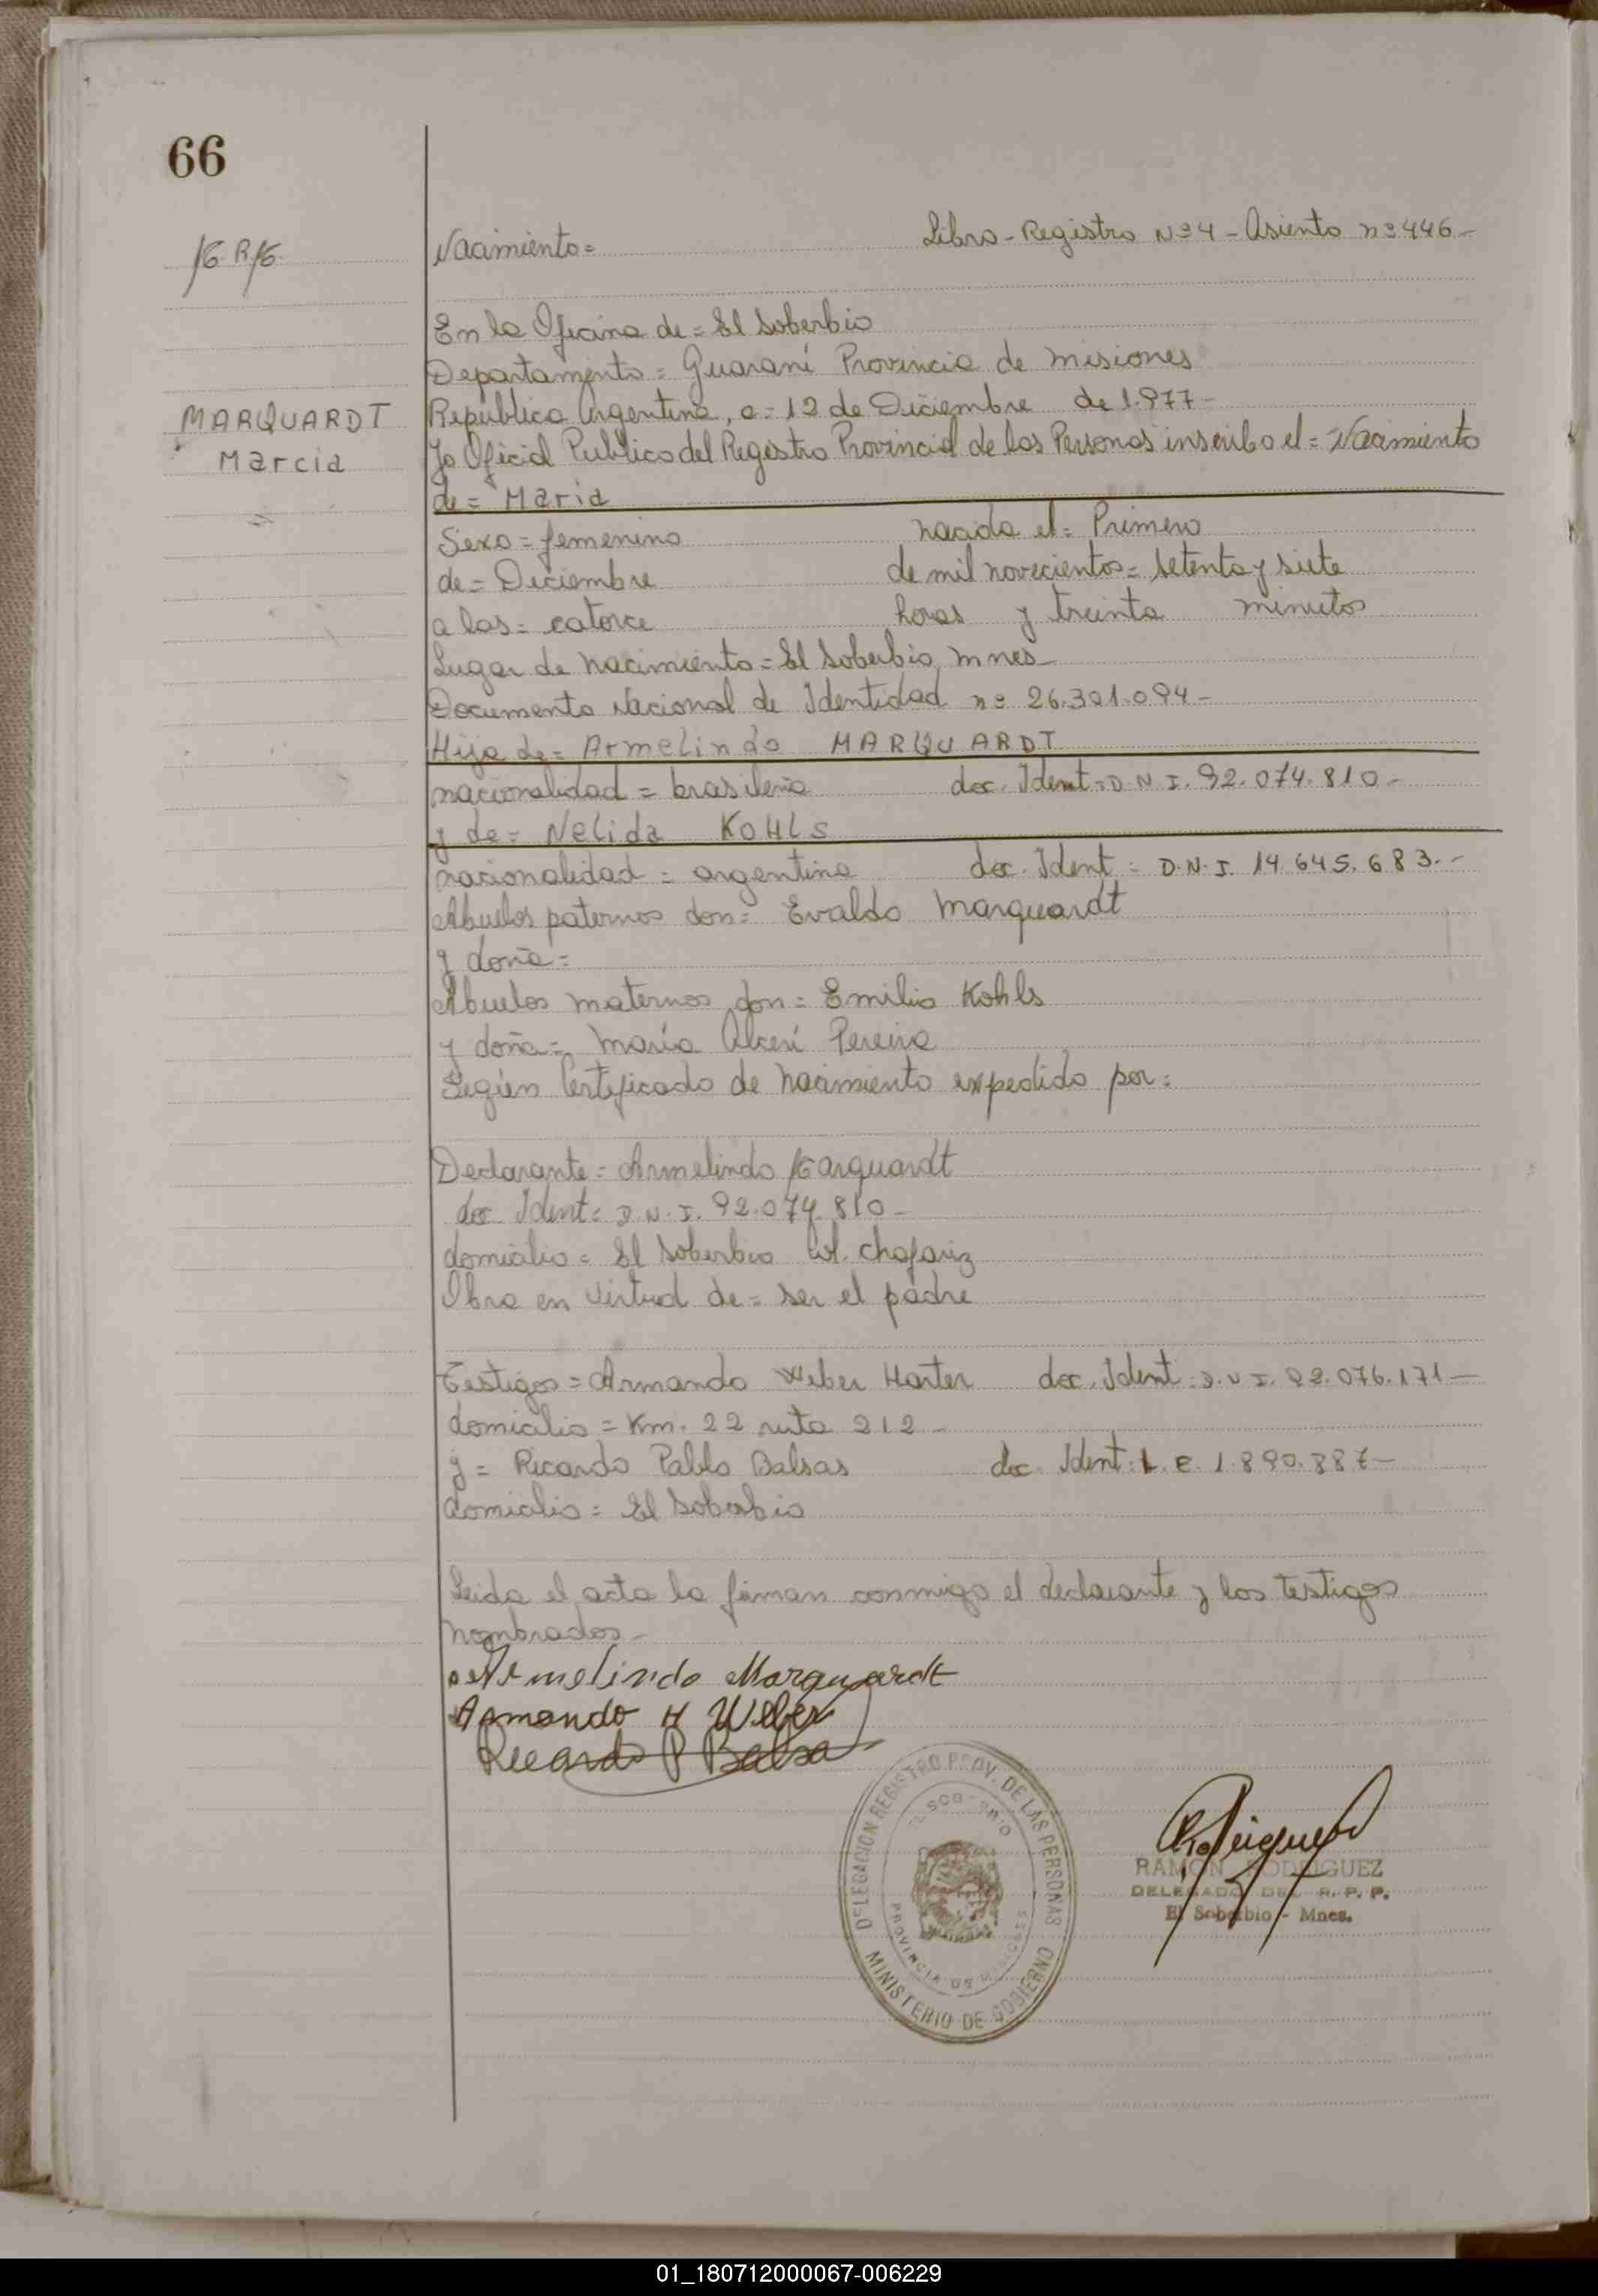 66
Nacimiento=
Libro-Registro Nº4-Asiento nº446-
En la Oficina de= El Soberbio
Departamento= Guaraní Provincia de Misiones
MARQUARDT
Marcia
República Argentina, a= 12 de Diciembre de 1.977-
Yo Oficial Publico del Registro Provincial de las Personas inscribo el= Nacimiento
de= Marcia
Sexo= femenino nacida el= Primero
de= Diciembre de mil novecientos= setenta y siete
a las= catorce horas y treinta minutos
Lugar de nacimiento= El Soberbio, Mnes-
Documento Nacional de Identidad nº 26.301.094-
Hija de= Armelindo MARQUARDT
nacionalidad= brasileña doc. Ident= D.N.I. 92.074.810-
y de= Nelida KOHLS
nacionalidad= argentina doc. Ident= D.N.I. 14.645.683.-
Abuelos paternos don= Evaldo Marquardt
y doña=
Abuelos maternos don= Emilio Kohls
y doña= María Pereira
Según Certificado de nacimiento expedido por=
Declarante= Armelindo Marquardt
doc. Ident= D.N.I. 92.074.810-
domicilio= El Soberbio Col. Chafariz
Obra en virtud de= ser el padre
Testigos= Armando Weber Harter doc. Ident= D.N.I. 92.076.171-
domicilio= Km. 22 ruta 212-
y= Ricardo Pablo Balsas doc. Ident: L.E. 1.890.887-
domicilio= El Soberbio
Leida el acta la firman conmigo el declarante y los testigos
nombrados-
Armelindo Marquardt
Armando H Weber
Ricardo P Balsa
DELEGACION REGISTRO PROV. DE LAS PERSONAS
EL SOBERBIO
PROVINCIA DE MISIONES
MINISTERIO DE GOBIERNO
RAMON RODRIGUEZ
DELEGADO DEL R. P. P.
El Soberbio - Mnes.
01_180712000067-006229